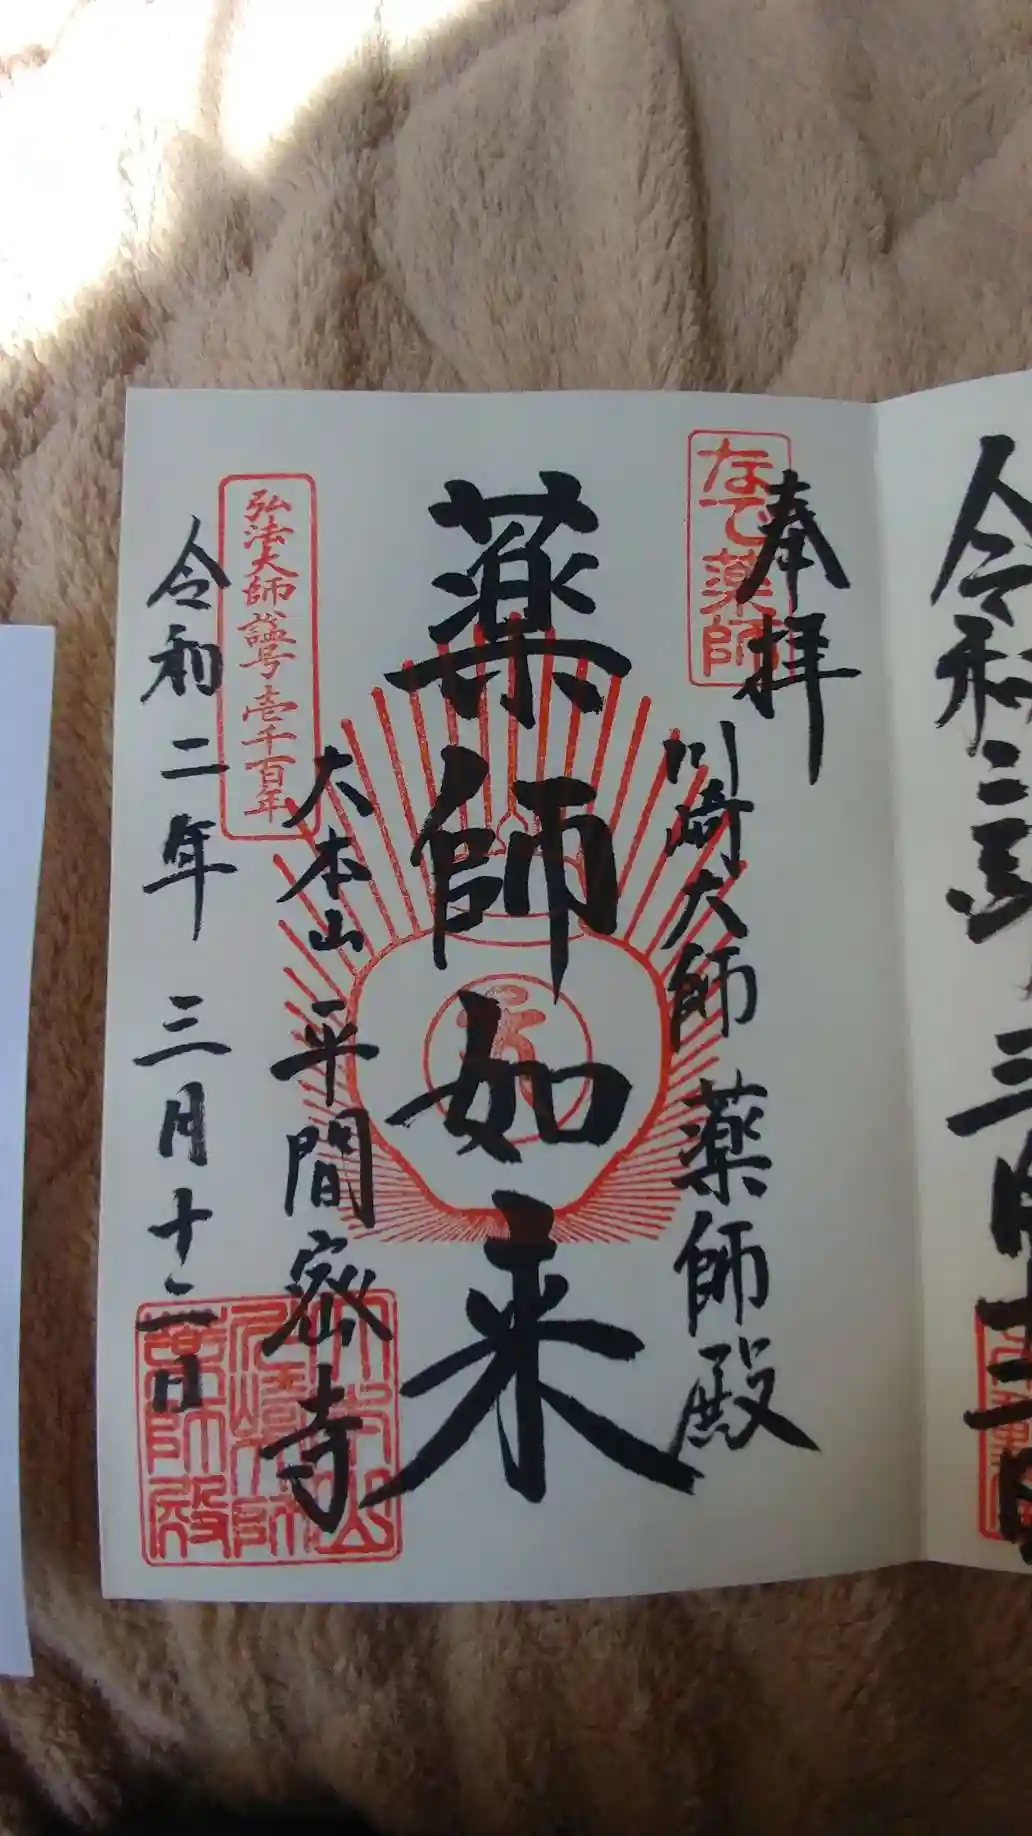 令和二年三月十二日
奉拝
なで薬師
川崎大師 薬師殿
薬師如来
大本山 平間密寺
弘法大師諡号壱千百年
令和二年 三月十二日
大本山
川崎大師
薬師殿